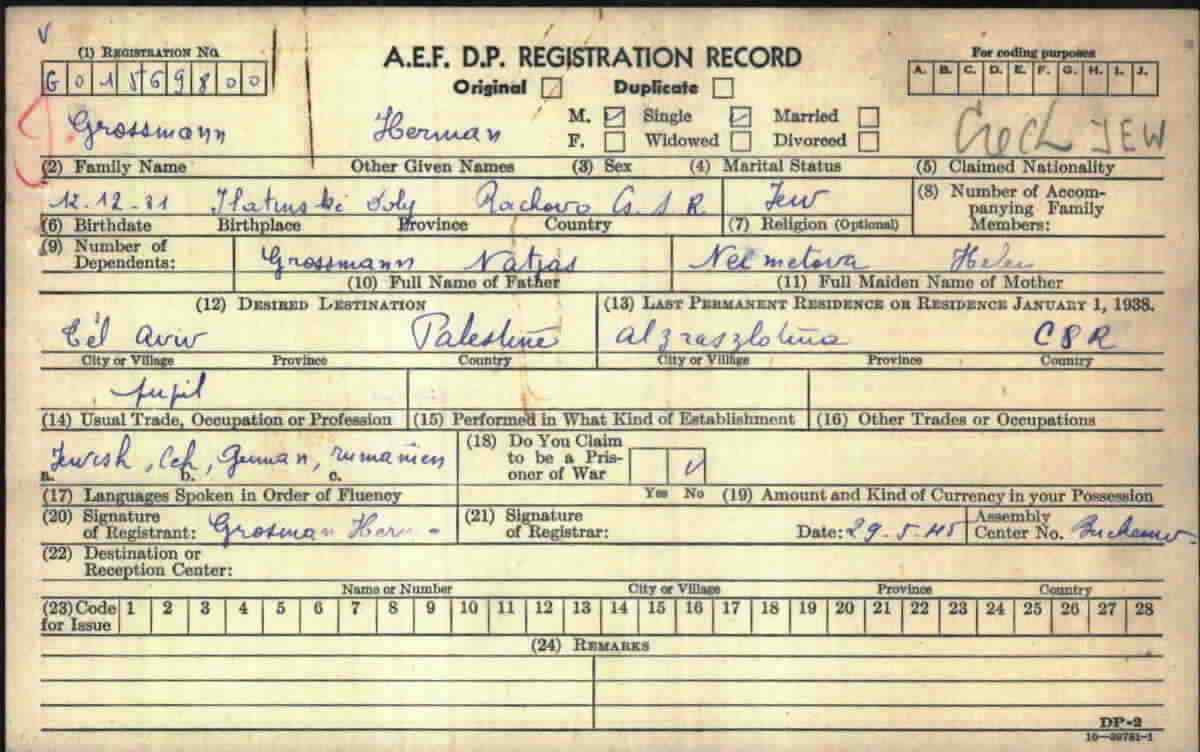 (1) REGISTRATION No.
A.E.F. D.P. REGISTRATION RECORD
For coding purposes
G 0 1 5 6 9 8 0 0
Original Duplicate
A. B. C. D. E. F. G. H. I. J.
Grossmann Herman M. Single Married
F. Widowed Divorced
Czech JEW
(2) Family Name Other Given Names (3) Sex (4) Marital Status (5) Claimed Nationality
12.12.31 Rachovo Cs. S. R. Jew
(8) Number of Accompanying Family Members:
(6) Birthdate Birthplace Province Country (7) Religion (Optional)
(9) Number of Dependents:
Grossmann Helen
(10) Full Name of Father (11) Full Maiden Name of Mother
(12) DESIRED DESTINATION (13) LAST PERMANENT RESIDENCE OR RESIDENCE JANUARY 1, 1938.
Tel aviv Palestine CSR
City or Village Province Country City or Village Province Country
pupil
(14) Usual Trade, Occupation or Profession (15) Performed in What Kind of Establishment (16) Other Trades or Occupations
Jewish, German,
a. b. c.
(18) Do You Claim to be a Prisoner of War
Yes No
(17) Languages Spoken in Order of Fluency (19) Amount and Kind of Currency in your Possession
(20) Signature of Registrant: Grosman
(21) Signature of Registrar:
Date: 29.5.45
Assembly Center No.
(22) Destination or Reception Center:
Name or Number City or Village Province Country
(23) Code for Issue 1 2 3 4 5 6 7 8 9 10 11 12 13 14 15 16 17 18 19 20 21 22 23 24 25 26 27 28
(24) REMARKS
DP-2
16—39781-1